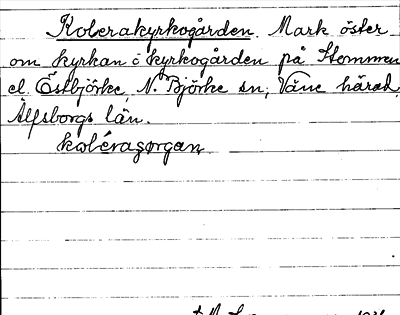 Kolerakyrkogården. Mark öster
om kyrkan o kyrkogården på Stommen
el. Östbjörke, N. Björke sn, Väne härad,
Älfsborgs län.
kɷléragørgan